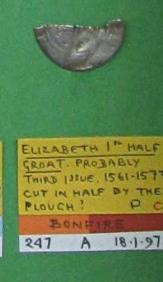 ELIZABETH 1ST HALF
GROAT. PROBABLY
THIRD ISSUE, 1561-1577
CUT IN HALF BY THE
PLOUGH? P C
BONFIRE
247 A 18·1·97